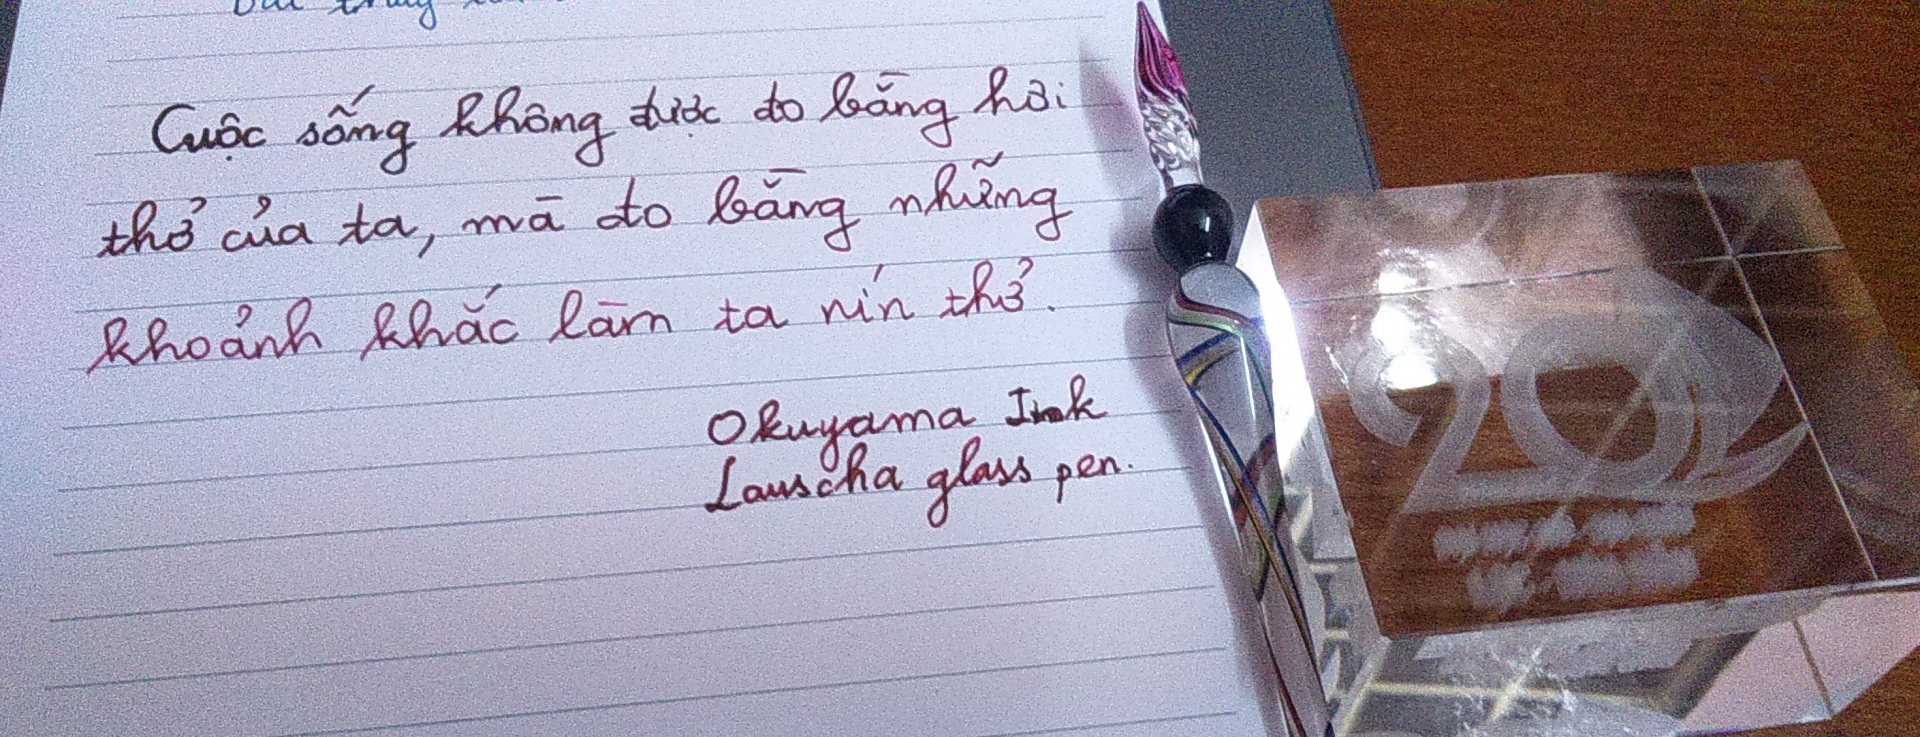 Cuộc sống không được đo bằng hơi
thở của ta, mà đo bằng những
khoảnh khắc làm ta nín thở.
Okuyama Ink
Lauscha glass pen.
20